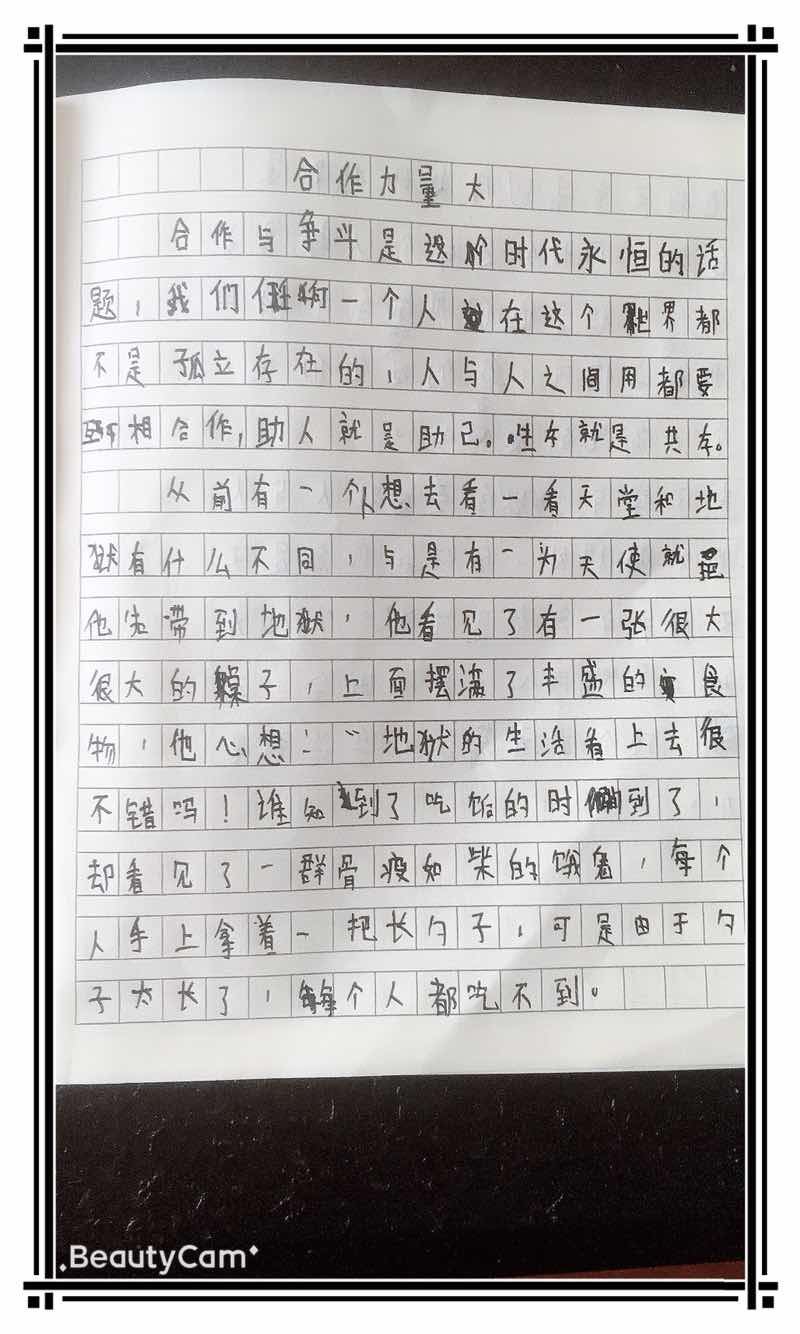 合作力量大
合作与争斗是这个时代永恒的话
题，我们任何一个人在这个世界都
不是孤立存在的，人与人之间用都要
互相合作，助人就是助己。生存就是共存。
从前有一个人想去看一看天堂和地
狱有什么不同，与是有一为天使就把
他先带到地狱，他看见了有一张很大
很大的桌子，上面摆满了丰盛的食
物，他心想：“地狱的生活看上去很
不错吗！谁知到了吃饭的时候到了，
却看见了一群骨瘦如柴的饿鬼，每个
人手上拿着一把长勺子，可是由于勺
子太长了，每个人都吃不到。
BeautyCam